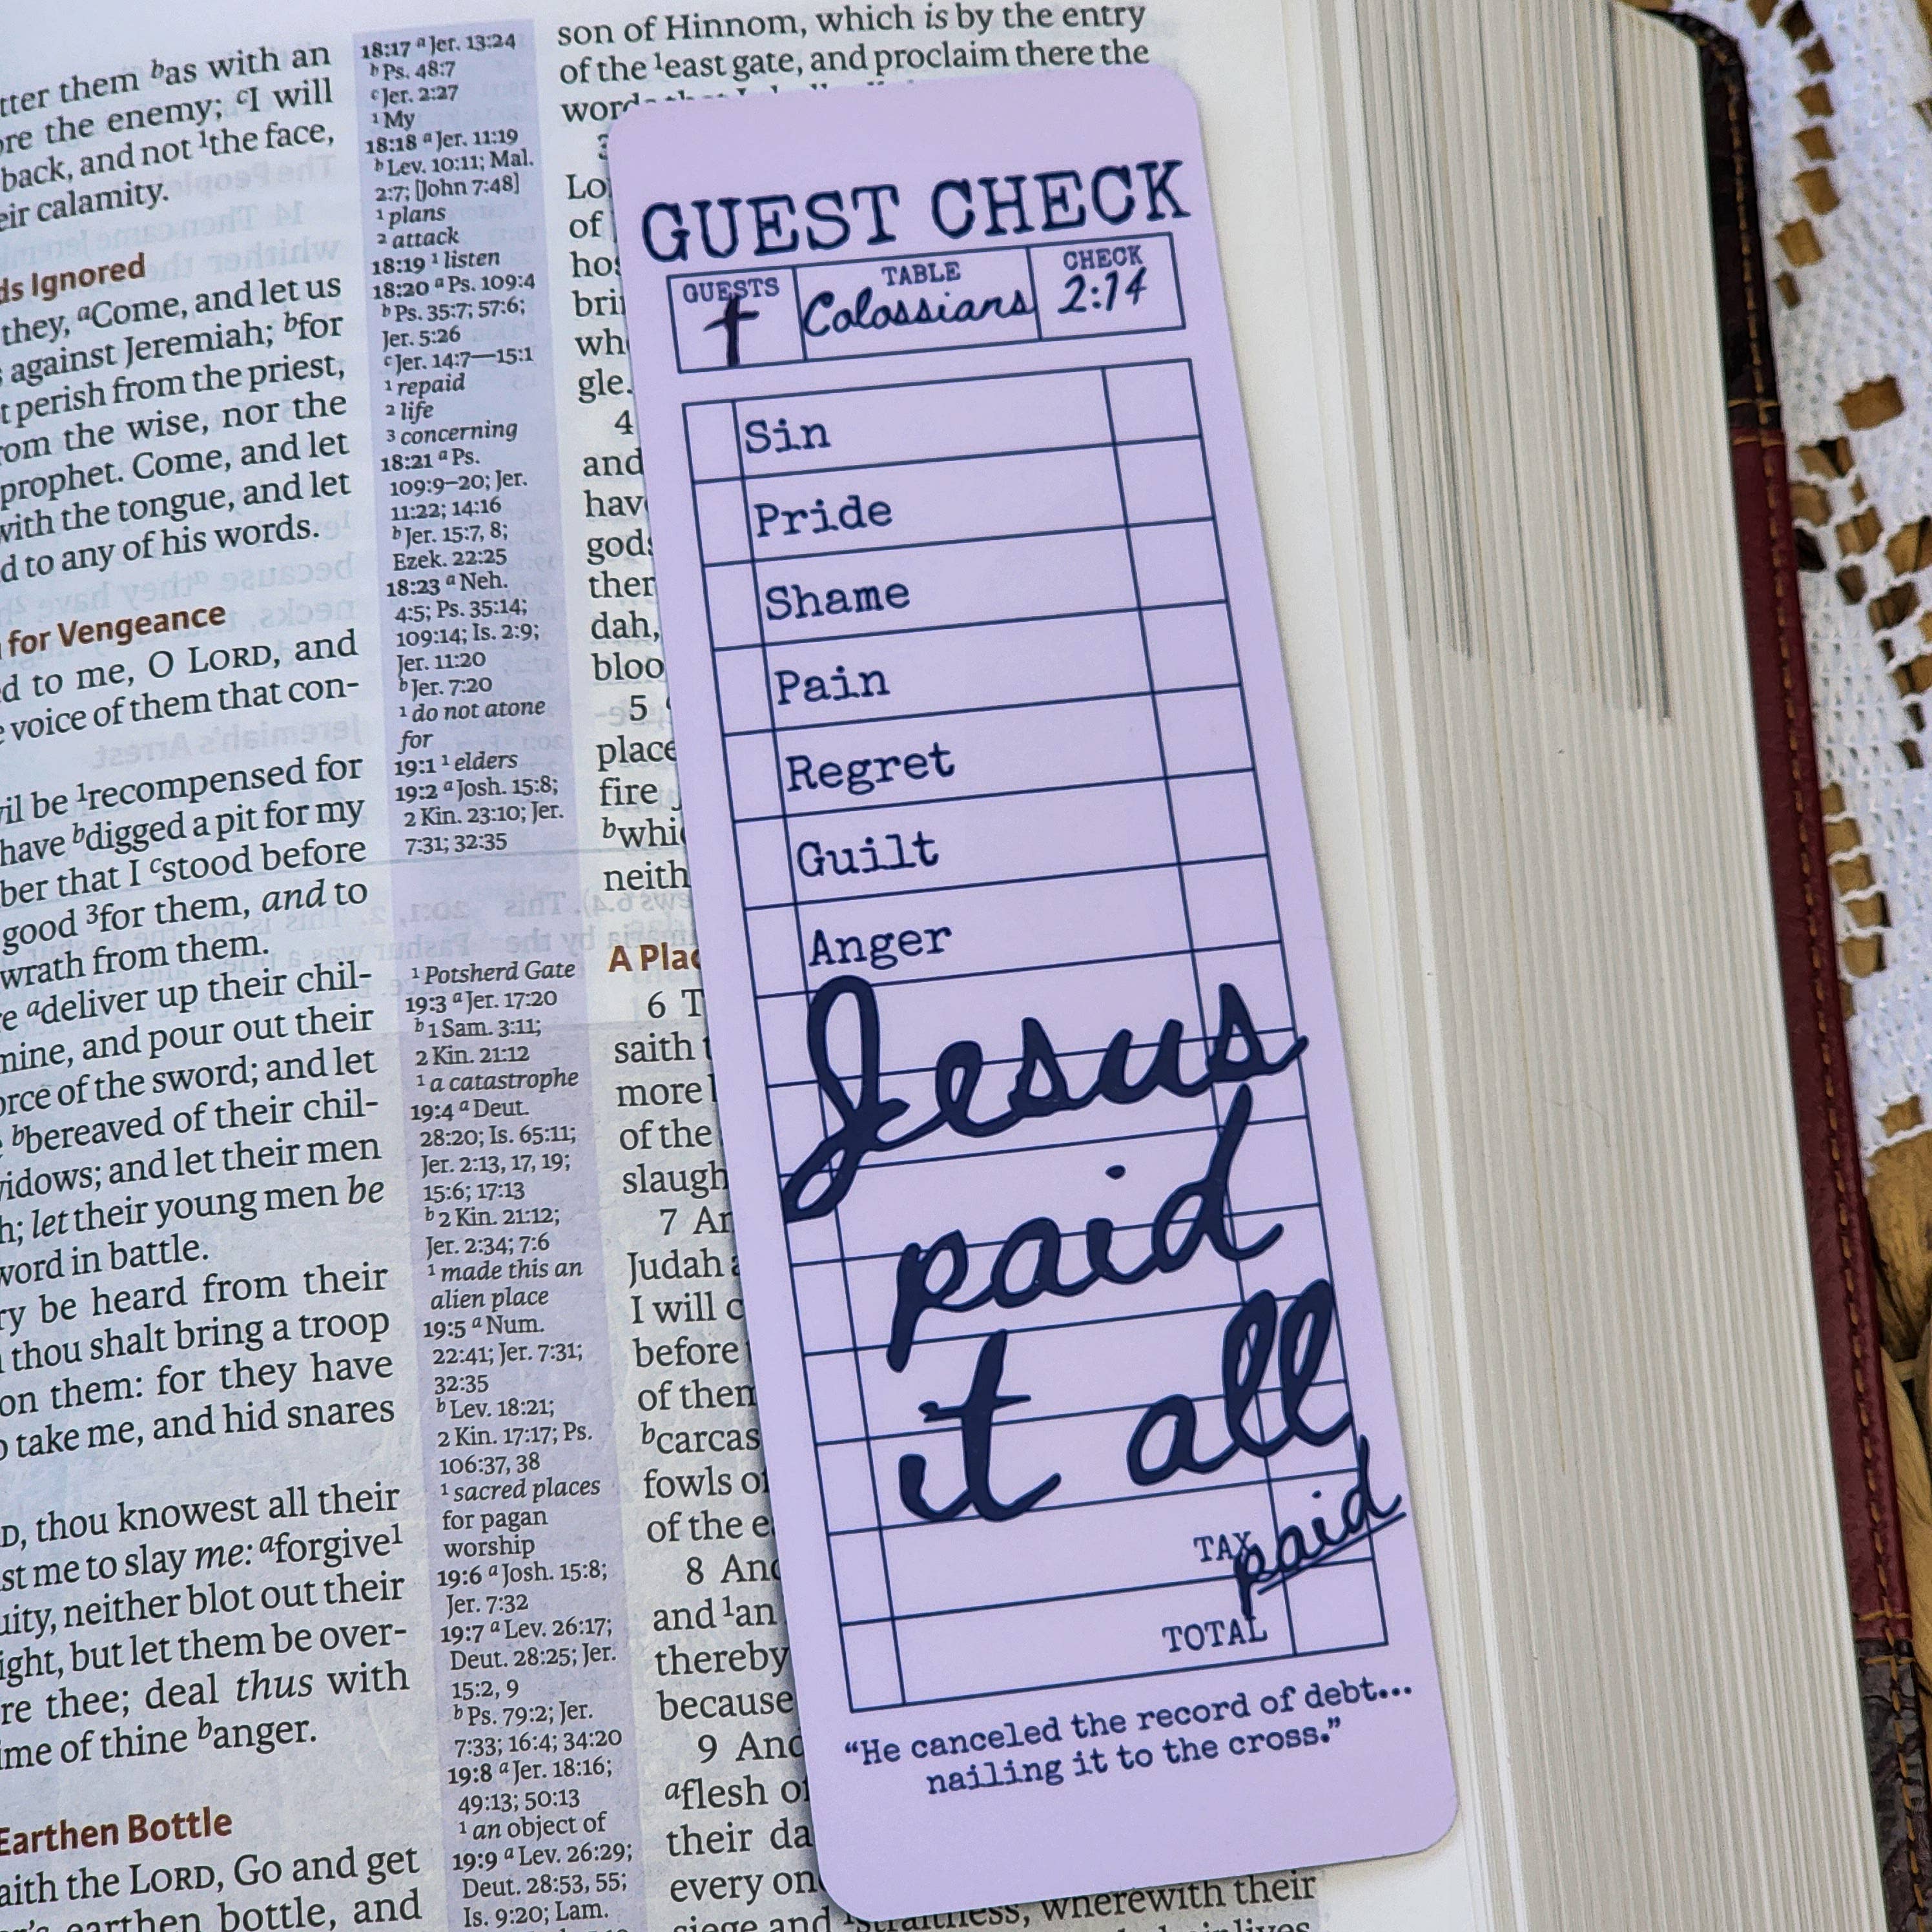 tter them ᵇas with an
re the enemy; ᶜI will
back, and not ¹the face,
eir calamity.
ds Ignored
they, ᵃCome, and let us
against Jeremiah; ᵇfor
t perish from the priest,
rom the wise, nor the
prophet. Come, and let
with the tongue, and let
d to any of his words.
for Vengeance
d to me, O LORD, and
voice of them that con-
vil be ¹recompensed for
have ᵇdigged a pit for my
ber that I ᶜstood before
good ³for them, and to
wrath from them.
re ᵃdeliver up their chil-
mine, and pour out their
orce of the sword; and let
ᵇbereaved of their chil-
vidows; and let their men
h; let their young men be
word in battle.
ry be heard from their
thou shalt bring a troop
on them: for they have
o take me, and hid snares
D, thou knowest all their
st me to slay me: ᵃforgive¹
uity, neither blot out their
ight, but let them be over-
re thee; deal thus with
ime of thine ᵇanger.
Earthen Bottle
aith the LORD, Go and get
earthen bottle, and
18:17 ᵃ Jer. 13:24
ᵇ Ps. 48:7
ᶜ Jer. 2:27
¹ My
18:18 ᵃ Jer. 11:19
ᵇ Lev. 10:11; Mal.
2:7; [John 7:48]
¹ plans
² attack
18:19 ¹ listen
18:20 ᵃ Ps. 109:4
ᵇ Ps. 35:7; 57:6;
Jer. 5:26
ᶜ Jer. 14:7—15:1
¹ repaid
² life
³ concerning
18:21 ᵃ Ps.
109:9–20; Jer.
11:22; 14:16
ᵇ Jer. 15:7, 8;
Ezek. 22:25
18:23 ᵃ Neh.
4:5; Ps. 35:14;
109:14; Is. 2:9;
Jer. 11:20
ᵇ Jer. 7:20
¹ do not atone
for
19:1 ¹ elders
19:2 ᵃ Josh. 15:8;
2 Kin. 23:10; Jer.
7:31; 32:35
¹ Potsherd Gate
19:3 ᵃ Jer. 17:20
ᵇ 1 Sam. 3:11;
2 Kin. 21:12
¹ a catastrophe
19:4 ᵃ Deut.
28:20; Is. 65:11;
Jer. 2:13, 17, 19;
15:6; 17:13
ᵇ 2 Kin. 21:12;
Jer. 2:34; 7:6
¹ made this an
alien place
19:5 ᵃ Num.
22:41; Jer. 7:31;
32:35
ᵇ Lev. 18:21;
2 Kin. 17:17; Ps.
106:37, 38
¹ sacred places
for pagan
worship
19:6 ᵃ Josh. 15:8;
Jer. 7:32
19:7 ᵃ Lev. 26:17;
Deut. 28:25; Jer.
15:2, 9
ᵇ Ps. 79:2; Jer.
7:33; 16:4; 34:20
19:8 ᵃ Jer. 18:16;
49:13; 50:13
¹ an object of
19:9 ᵃ Lev. 26:29;
Deut. 28:53, 55;
Is. 9:20; Lam.
son of Hinnom, which is by the entry
of the ¹east gate, and proclaim there the
Lo
of
hos
bri
wh
gle.
4
and
hav
gods
ther
dah,
bloo
5
place
fire
ᵇwhi
neith
A Plac
6 T
saith
more
of the
slaugh
7 An
Judah
I will c
before
of them
ᵇcarcas
fowls of
of the e
8 And
and ¹an
thereby
because
9 And
ᵃflesh o
their da
every on
siege and ¹straitness, wherewith their
GUEST CHECK
GUESTS TABLE CHECK
Colossians 2:14
Sin
Pride
Shame
Pain
Regret
Guilt
Anger
Jesus
paid
it all
TAX paid
TOTAL
“He canceled the record of debt...
nailing it to the cross.”